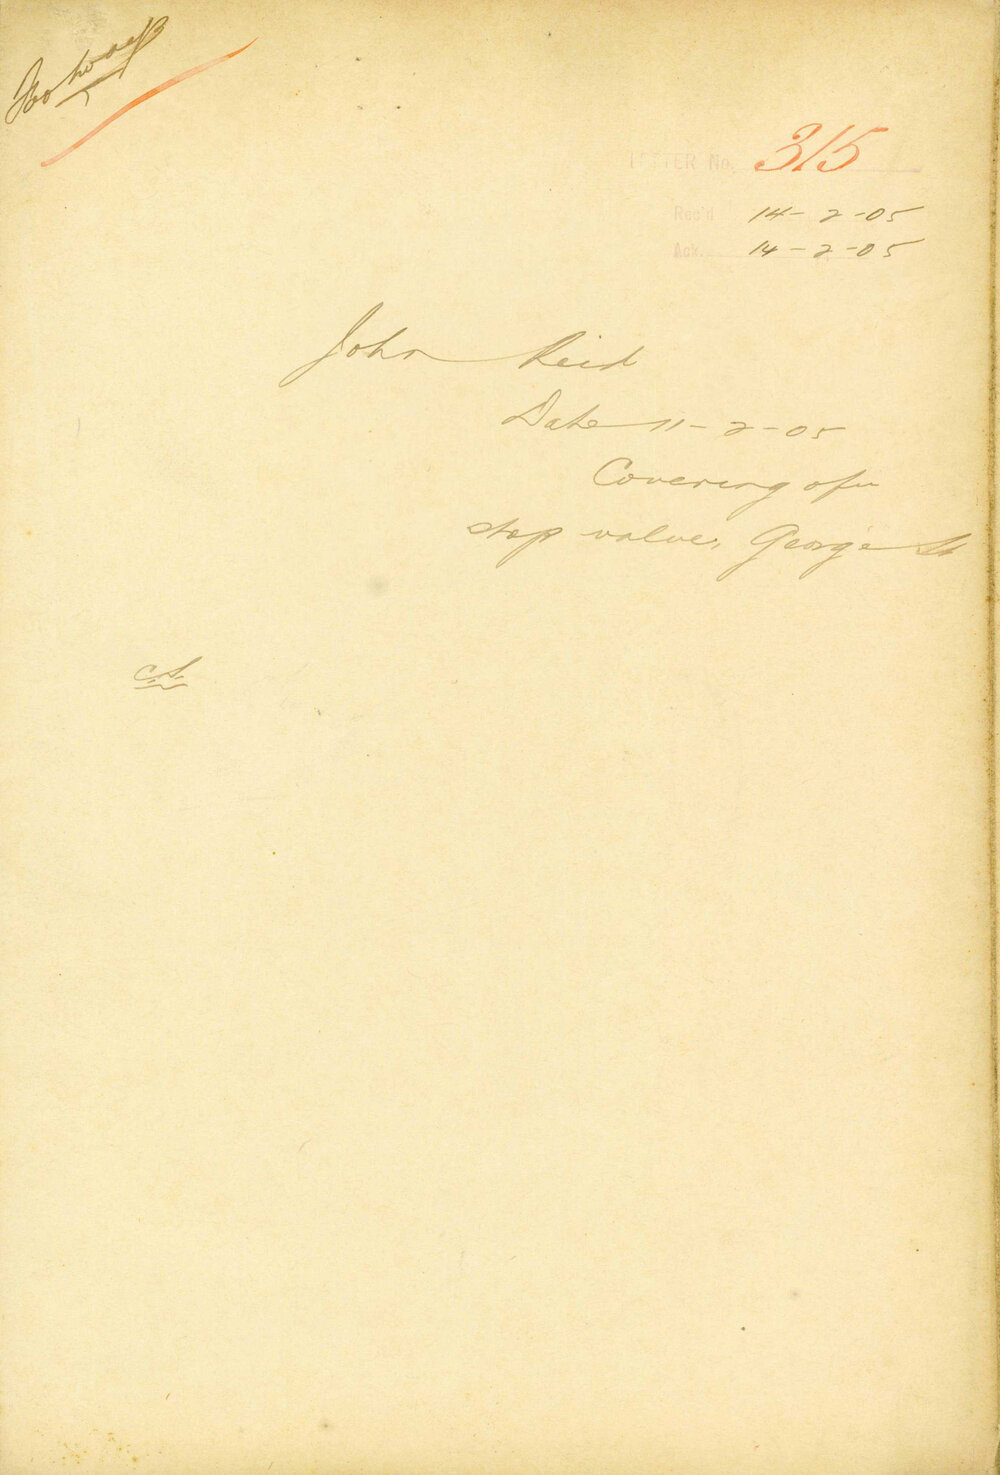 LETTER No. 315
Rec'd 14-2-05
Ack. 14-2-05
John Reid
Date 11-2-05
Covering of
stop valve, George St